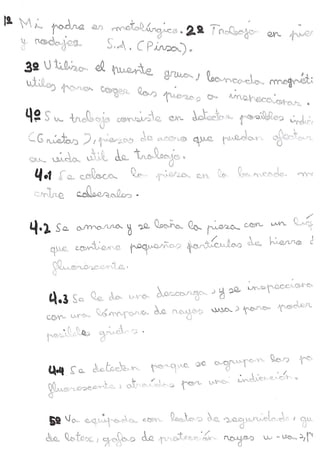 1º Mi padre es metalúrgico. 2º Trabaja en
y rodajes S.A. (Pinsa).
3º Utiliza el puente grua, bancada
utiles para coger las piezas a inspeccionar.
4º Su trabajo consiste en detectar posibles
(Grietas), piezas de acero que puedan afectar
su vida útil de trabajo.
4.1 Se coloca la pieza en la bancada
entre cabezales.
4.2 Se amarra y se baña la pieza con un
que contiene pequeñas partículas de hierro
fluorescente.
4.3 Se le da una descarga, y se inspecciona
con una lámpara de rayos uva, para poder
posibles grietas.
4.4 Se detectan porque se agrupan las
fluorescente, atraidas por una indicación.
5º Va equipado con botas de seguridad,
de latex, gafas de protección rayos u-va,